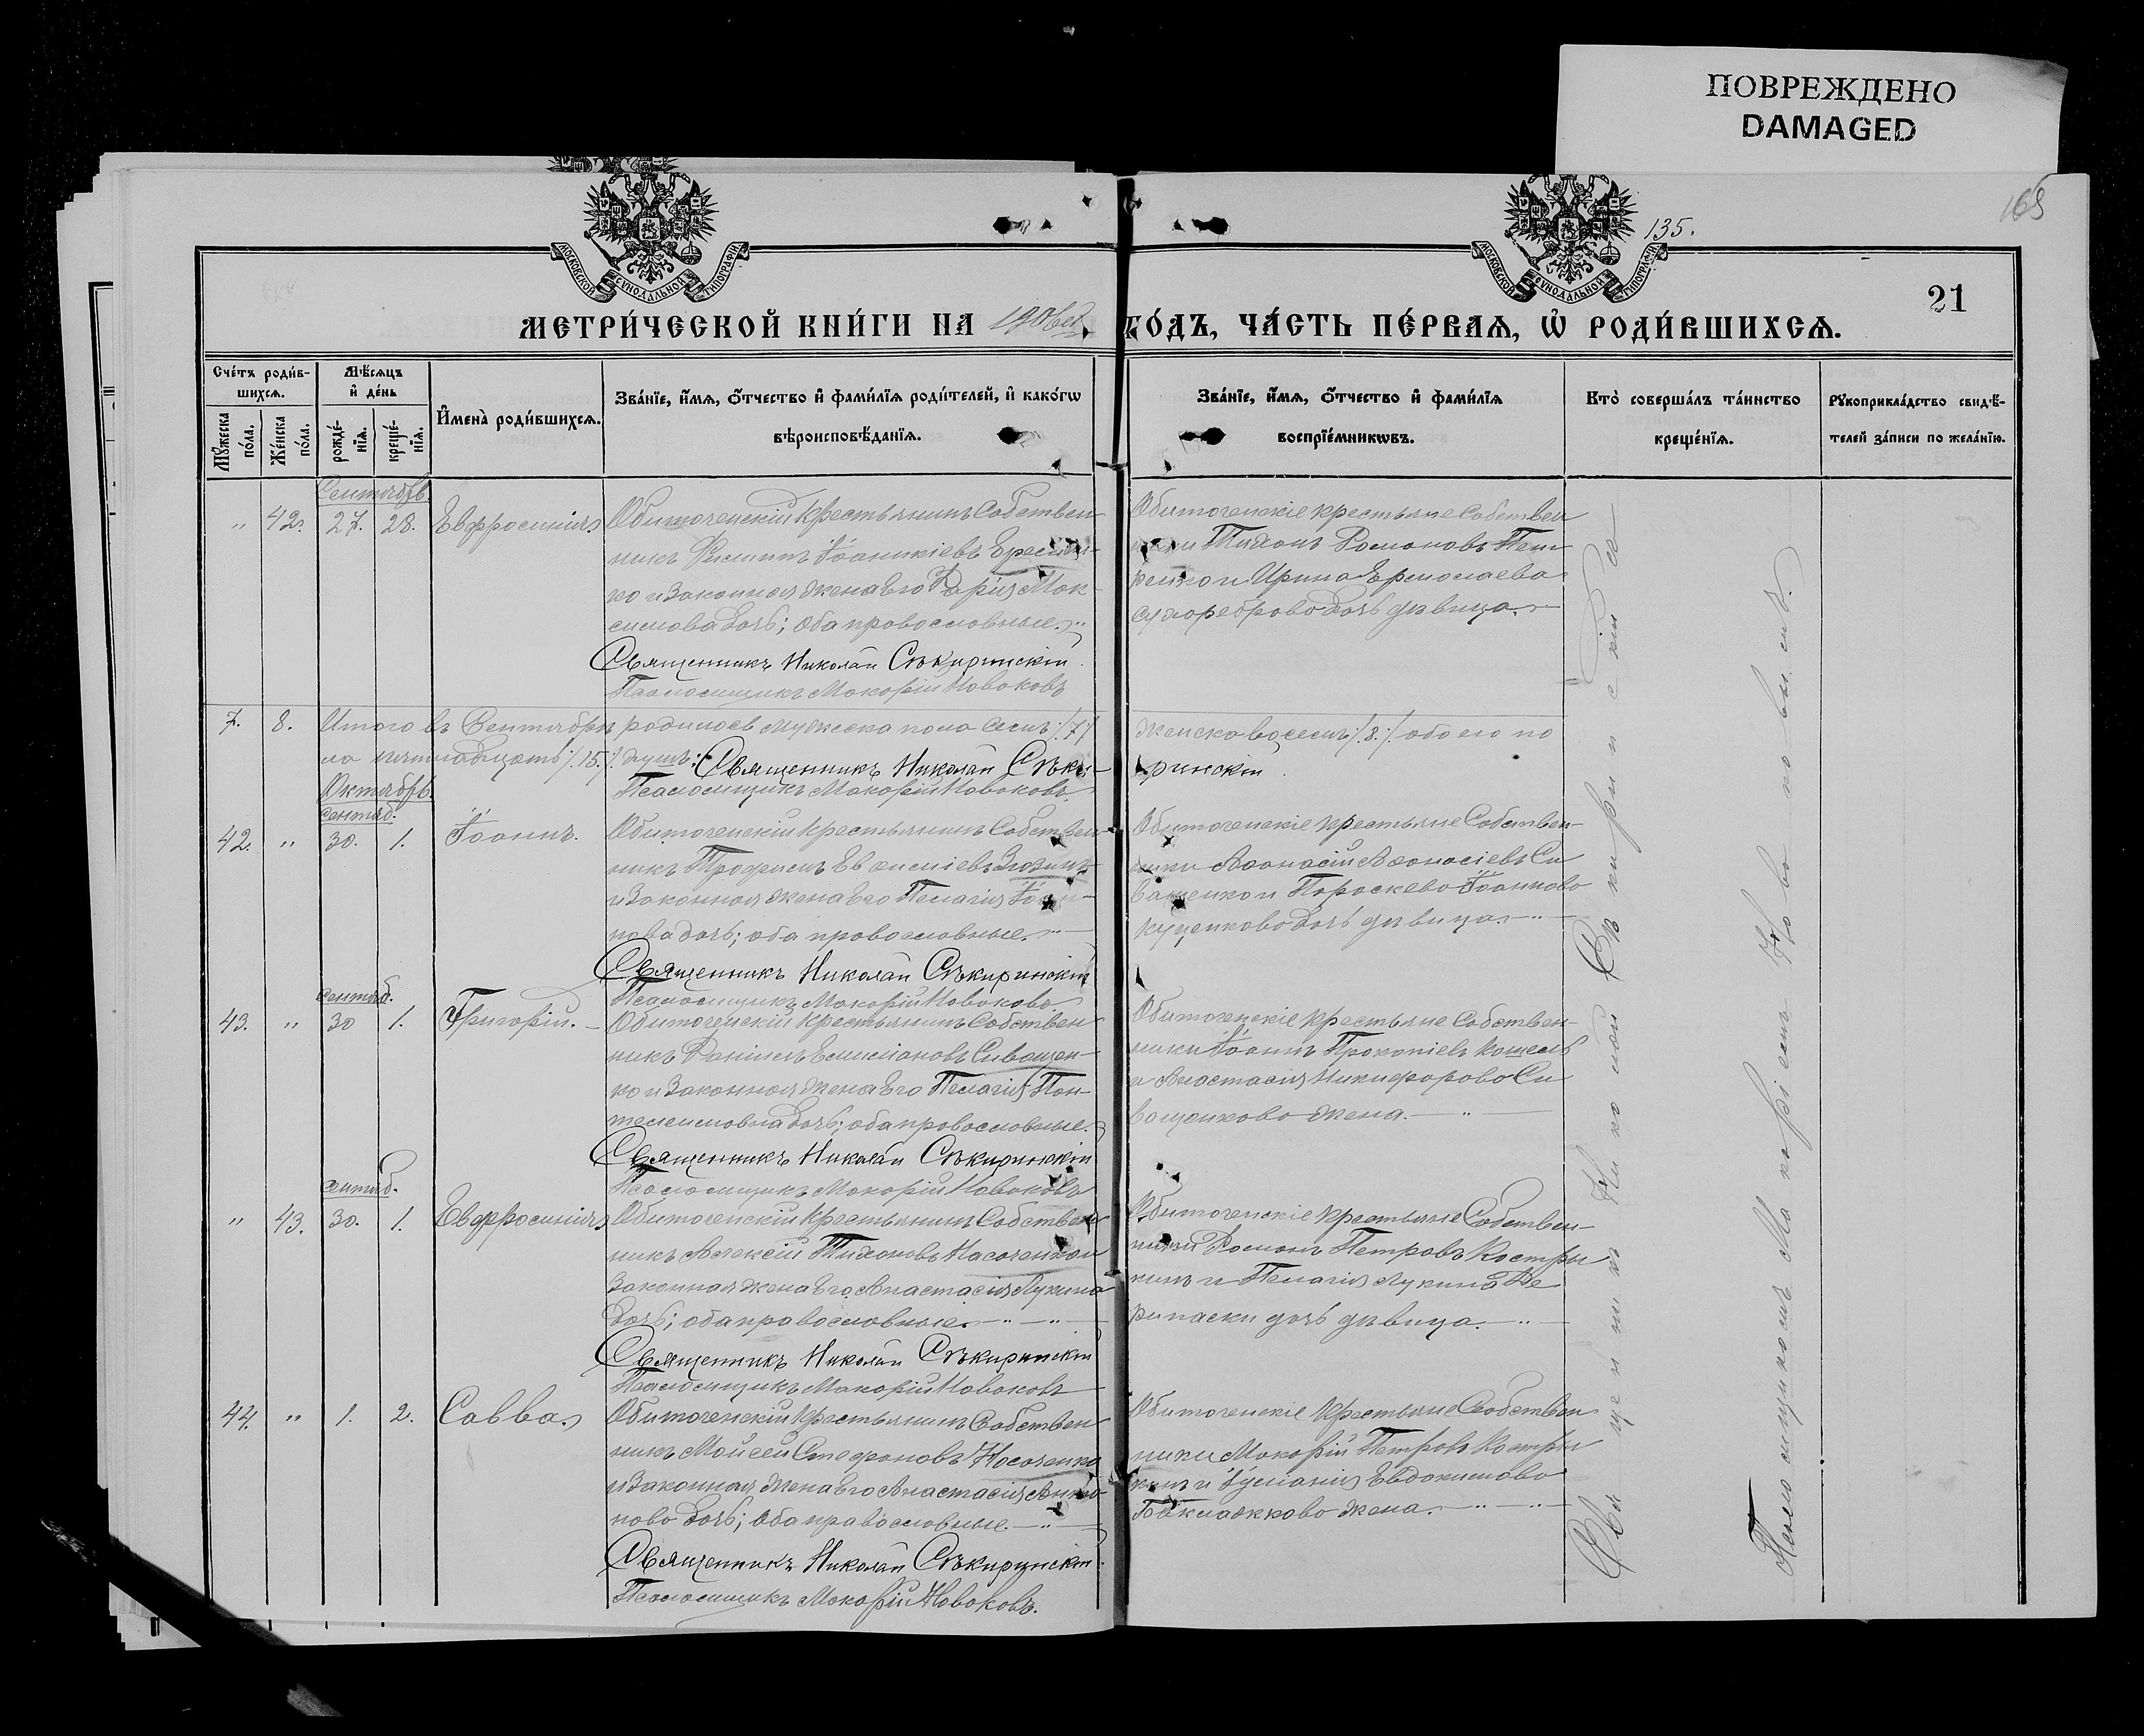 ПОВРЕЖДЕНО
DAMAGED
165
135.
21
МОСКОВСКОЙ СѴНОДАЛЬНОЙ ТИПОГРАФІИ
МОСКОВСКОЙ СѴНОДАЛЬНОЙ ТИПОГРАФІИ
МЕТРИ́ЧЕСКОЙ КНИ́ГИ НА 190 ГО́ДЪ, ЧА́СТЬ ПЕ́РВАѦ, Ѡ РОДИ́ВШИХСѦ.
Сче́тъ роди́в-
шихсѧ.
Мꙋ́жеска по́ла.
Же́нска по́ла.
Мѣ́сѧцъ
и҆ де́нь
рожде́-
нїѧ.
креще́-
нїѧ.
И҆мена̀ роди́вшихсѧ.
Зва́нїе, и҆́мѧ, ѻ҆́тчество и҆ фами́лїѧ роди́телей, и҆ како́гѡ
вѣроисповѣ́данїѧ.
Зва́нїе, и҆́мѧ, ѻ҆́тчество и҆ фами́лїѧ
воспрїе́мникѡвъ.
Кто̀ соверша́лъ та́инство
креще́нїѧ.
Рꙋкоприкла́дство свидѣ́-
телей за́писи по жела́нїю.
Сентябрь
" 42. 27. 28. Евфросинія
Обиточенскій крестьянинъ Собствен
никъ Филиппъ Іоанникіевъ
ко и Законная жена его Дарія Мак
симова дочь; оба православные.
Священникъ Николай Сѣкиринскій
Псаломщикъ Макарій Новаковъ
Обиточенскіе крестьяне Собствен
ники Тихонъ Романовъ
ренко и Ирина Ермолаева
Сухореброва дочь дѣвица.
7. 8. Итого въ Сентябрѣ родилось мужеска пола семь /.7./ женска восемь /.8./ обоего по
ла пятнадцать /.15./ душъ: Священникъ Николай Сѣки-ринскій
Псаломщикъ Макарій Новаковъ
Октябрь
сентяб.
42. " 30. 1. Іоаннъ.
Обиточенскій крестьянинъ Собствен-
никъ Трофимъ Евфиміевъ
и Законная жена его Пелагія Іоан-
нова дочь; оба православные.
Священникъ Николай Сѣкиринскій
Псаломщикъ Макарій Новаковъ
Обиточенскіе крестьяне Собствен-
ники Аѳанасій Аѳанасіевъ Си
ващенко и Параскева Іоаннова
Куценкова дочь дѣвица.
сентяб.
43. " 30 1. Григорій.
Обиточенскій крестьянинъ Собствен
никъ Даніилъ Емиліановъ Сиващен-
ко и Законная жена его Пелагія Пан-
телеимонова дочь; оба православные.
Священникъ Николай Сѣкиринскій
Псаломщикъ Макарій Новаковъ
Обиточенскіе крестьяне Собствен-
ники Іоаннъ Прокопіевъ Кошель
и Анастасія Никифорова Си
ващенкова жена.
сентяб.
" 43. 30. 1. Евфросинія
Обиточенскій крестьянинъ Собствен
никъ Алексій Тихоновъ Носаченко и
Законная жена его Анастасія Лукина
дочь; оба православные.
Священникъ Николай Сѣкиринскій
Псаломщикъ Макарій Новаковъ
Обиточенскіе крестьяне Собствен-
ники Романъ Петровъ Костры
кинъ и Пелагія Лукина Де
рипаски дочь дѣвица.
44. " 1. 2. Савва.
Обиточенскій крестьянинъ Собствен
никъ Мойсей Стефановъ Носаченко
и Законная жена его Анастасія
нова дочь; оба православные.
Священникъ Николай Сѣкиринскій
Псаломщикъ Макарій Новаковъ.
Обиточенскіе крестьяне Собствен
ники Макарій Петровъ Костры
кинъ и Іуліанія Евдокимова
Баклажкова жена.
Священникъ Николай Сѣкиринскій съ
Псаломщикомъ Макаріемъ Новаковымъ.